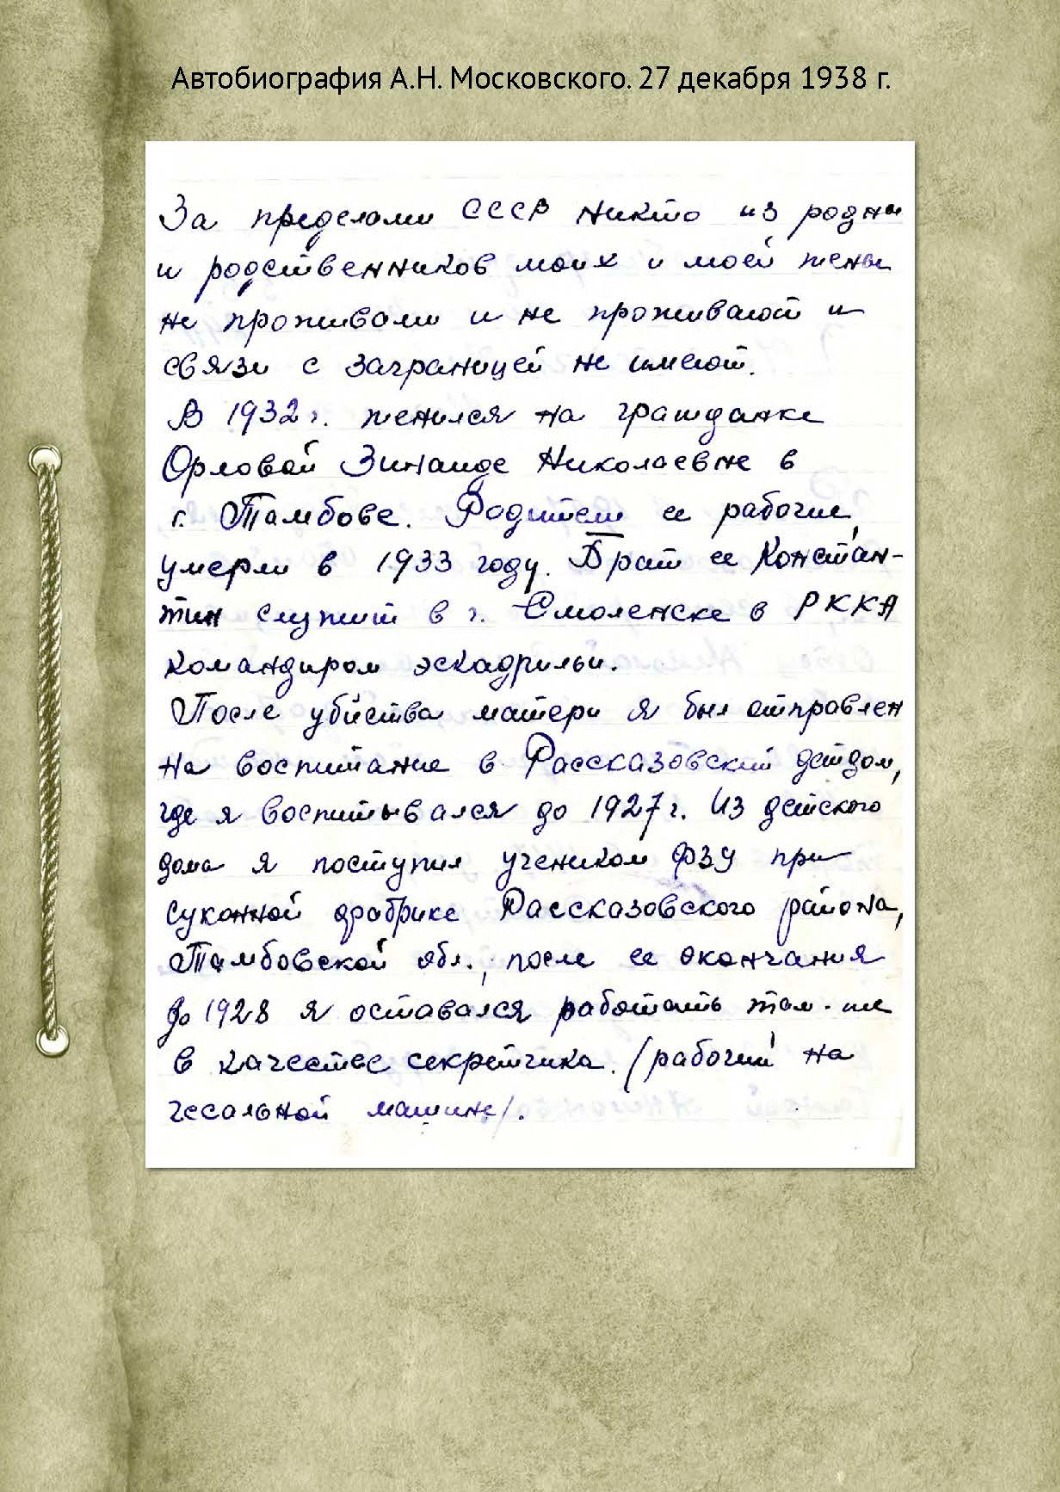 Автобиография А.Н. Московского. 27 декабря 1938 г.
За пределами СССР никто из родны
и родственников моих и моей жены
не проживали и не проживают и
связи с заграницей не имеют.
В 1932 г. женился на гражданке
Орловой Зинаиде Николаевне в
г. Тамбове. Родители ее рабочие,
умерли в 1933 году. Брат ее Констан-
тин служит в г. Смоленске в РККА
командиром эскадрильи.
После убийства матери я был отправлен
на воспитание в Рассказовский детдом,
где я воспитывался до 1927 г. Из детского
дома я поступил учеником ФЗУ при
суконной фабрике Рассказовского района,
Тамбовской обл., после ее окончания
до 1928 я оставался работать там-же
в качестве секретчика. (рабочий на
чесальной машине).